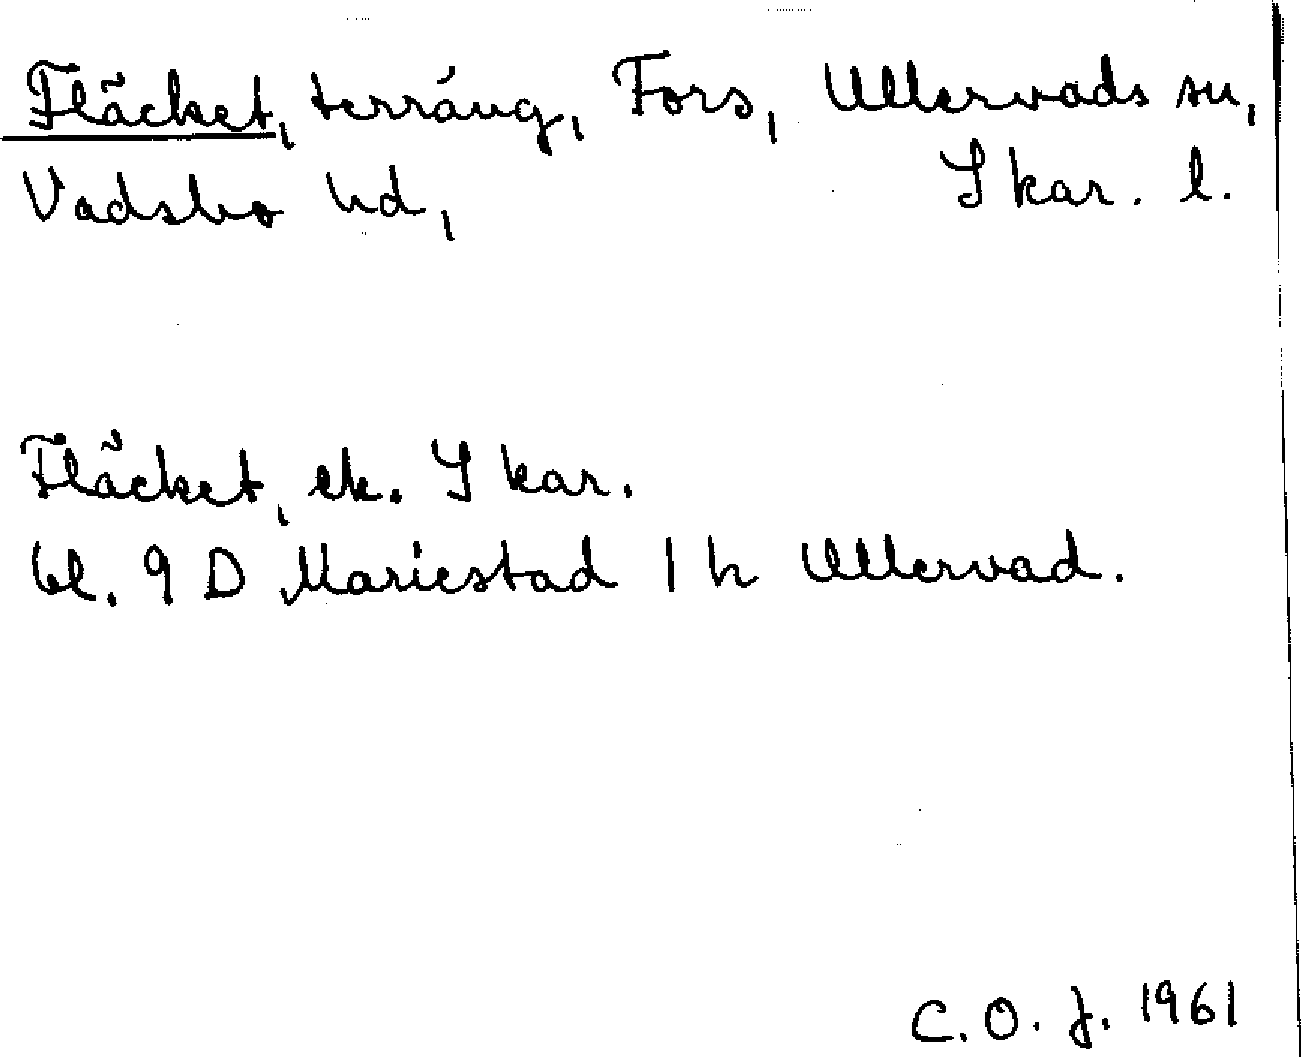 Fläcket, terräng, Fors, Ullervads sn,
Vadsbo hd, Skar. l.
Fläcket, ek. Skar.
bl. 9 D Mariestad 1 h Ullervad.
C. O. J. 1961